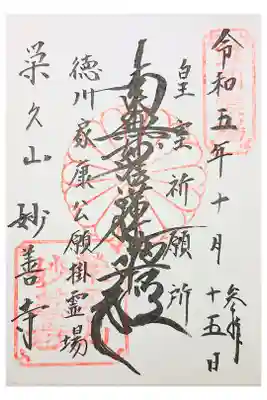 令和五年十月
十五日
参拝
皇室祈願所
南無妙法蓮華経
徳川家康公願掛霊場
栄久山 妙善寺